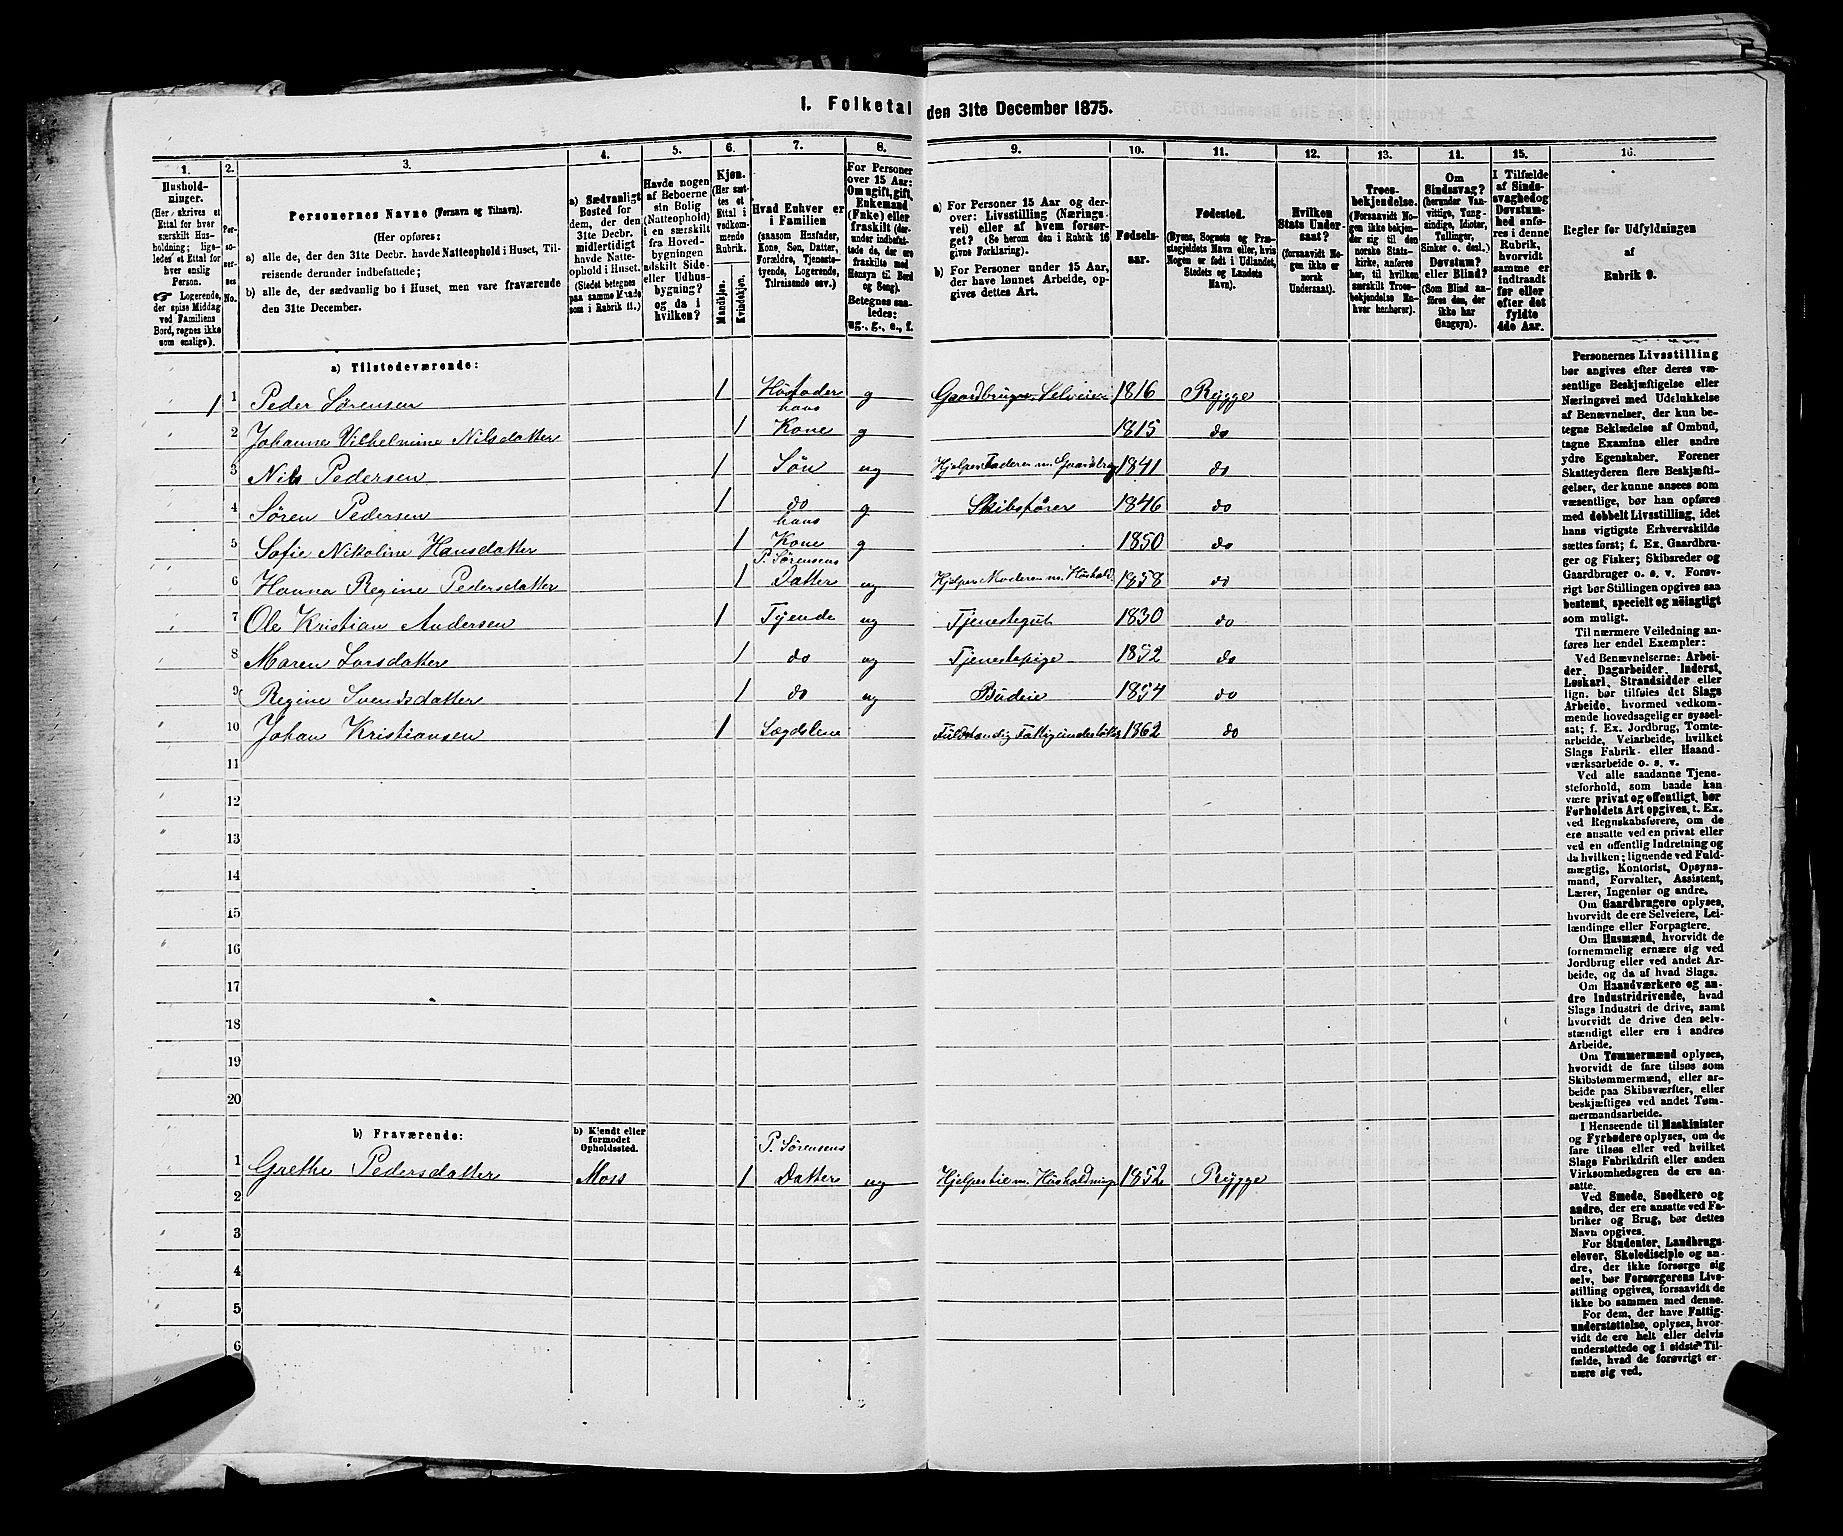 I. Folketal den 31te December 1875.
1. 2. 3. 4. 5. 6. 7. 8. 9. 10. 11. 12. 13. 14. 15. 16.
Husholdninger.
(Her skrives et Ettal for hver særskilt Husholdning; ligeledes et Ettal for hver enslig Person.
☞ Logerende, der spise Middag ved Familiens Bord, regnes ikke som enslige).
Personernes No.
Personernes Navne (Fornavn og Tilnavn).
(Her opføres:
a) alle de, der den 31te Decbr. havde Natteophold i Huset, Tilreisende derunder indbefattede;
b) alle de, der sædvanlig bo i Huset, men vare fraværende den 31te December.
a) Sædvanligt Bosted for dem, der den 31te Decbr. midlertidigt havde Natteophold i Huset. (Stedet betegnes paa samme Maade som i Rubrik 11.)
Havde nogen af Beboerne sin Bolig (Natteophold) i en særskilt fra Hovedbygningen adskilt Side- eller Udhusbygning? og da i hvilken?
Kjøn. (Her sættes et Ettal i vedkommende Rubrik.
Mandkjøn.
Kvindekjøn.
Hvad Enhver er i Familien
(saasom Husfader, Kone, Søn, Datter, Forældre, Tjenestetyende, Logerende, Tilreisende osv.)
For Personer over 15 Aar: Om ugift, gift, Enkemand (Enke) eller fraskilt (derunder indbefattede de, der ere fraskilte med Hensyn til Bord og Seng).
Betegnes saaledes: ug., g., e., f.
a) For Personer 15 Aar og derover: Livsstilling (Næringsvei) eller af hvem forsørget? (Se herom den i Rubrik 16 givne Forklaring).
b) For Personer under 15 Aar, der have lønnet Arbeide, opgives dettes Art.
Fødselsaar.
Fødested.
(Byens, Sognets og Præstegjeldets Navn eller, hvis Nogen er født i Udlandet, Stedets og Landets Navn).
Hvilken Stats Undersaat?
(forsaavidt Nogen ikke er norsk Undersaat).
Troesbekjendelse.
(Forsaavidt Nogen ikke bekjender sig til den norske Statskirke, anføres her, til hvilken særskilt Troesbekjendelse Enhver henhører).
Om Sindssvag? (herunder Vanvittige, Tungsindige, Idioter, Tullinger, Sinker o. desl.) Døvstum? eller Blind? (Som Blind anføres den, der ikke har Gangsyn).
I Tilfælde af Sindssvaghed og Døvstumhed anføres i denne Rubrik, hvorvidt samme er indtraadt før eller efter det fyldte 4de Aar.
Regler for Udfyldningen af Rubrik 9.
a) Tilstedeværende:
1 1 Peder Sørensen 1 Husfader g Gaardbruger, Selveier 1816 Rygge
2 Johanne Vilhelmine Nilsdatter 1 hans Kone g 1815 do
3 Nils Pedersen 1 Søn ug Hjelper Faderen m. Gaardsbrug 1841 do
4 Søren Pedersen 1 do g Skibsfører 1846 do
5 Sofie Nikoline Hansdatter 1 hans Kone g 1850 do
6 Hanna Regine Pedersdatter 1 P. Sørensens Datter ug Hjelper Moderen m. Hushold. 1858 do
7 Ole Kristian Andersen 1 Tyende ug Tjenestegut 1830 do
8 Maren Larsdatter 1 do ug Tjenestepige 1852 do
9 Regine Svendsdatter 1 do ug Budeie 1854 do
10 Johan Kristiansen 1 Lægdslem Fuldstændig Fattigunderstøttet 1862 do
11
12
13
14
15
16
17
18
19
20
b) Fraværende:
b) Kjendt eller formodet Opholdssted.
1 Grethe Pedersdatter Moss 1 P. Sørensens Datter ug Hjelper til m. Husholdning 1852 Rygge
2
3
4
5
6
Personernes Livsstilling
bør angives efter deres væ-
sentlige Beskjæftigelse eller
Næringsvei med Udelukkelse
af Benævnelser, der kun be-
tegne Beklædelse af Ombud,
tagne Examina eller andre
ydre Egenskaber. Forener
Skatteyderen flere Beskjæfti-
gelser, der kunne ansees som
væsentlige, bør han opføres
med dobbelt Livsstilling, idet
hans vigtigste Erhvervskilde
sættes først; f. Ex. Gaardbru-
ger og Fisker; Skibsreder og
Gaardbruger o. s. v. Forøv-
rigt bør Stillingen opgives saa
bestemt, specielt og nöiagtigt
som muligt.
Til nærmere Veiledning an-
føres her endel Exempler:
Ved Benævnelserne: Arbei-
der, Dagarbeider, Inderst,
Løskarl, Strandsidder eller
lign. bør tilføies det Slags
Arbeide, hvormed vedkom-
mende hovedsagelig er syssel-
sat; f. Ex. Jordbrug, Tomte-
arbeide, Veiarbeide, hvilket
Slags Fabrik- eller Haand-
værksarbeide o. s. v.
Ved alle saadanne Tjene-
steforhold, som baade kan
være privat og offentligt, bør
Forholdets Art opgives, t. Ex.
ved Regnskabsførere, om de
ere ansatte ved en privat eller
ved en offentlig Indretning og
da hvilken; lignende ved Fuld-
mægtig, Kontorist, Opsyns-
mand, Forvalter, Assistent,
Lærer, Ingeniør og andre.
Om Gaardbrugere oplyses,
hvorvidt de ere Selveiere, Lei-
lændinge eller Forpagtere.
Om Husmænd, hvorvidt de
fornemmelig ernære sig ved
Jordbrug eller ved andet Ar-
beide, og da af hvad Slags.
Om Haandværkere og an-
dre Industridrivende, hvad
Slags Industri de drive, samt
hvorvidt de drive den selv-
stændigt eller ere i andres
Arbeide.
Om Tømmermænd oplyses,
hvorvidt de fare tilsøs som
Skibstømmermænd, eller ar-
beide paa Skibsværfter, eller
beskjæftiges ved andet Tøm-
mermandsarbeide.
I Henseende til Maskinister
og Fyrbødere oplyses, om de
fare tilsøs eller ved hvilket
Slags Fabrikdrift eller anden
Virksomhedsgren de ere an-
satte.
Ved Smede, Snedkere og
andre, der ere ansatte ved Fa-
briker og Brug, bør dettes
Navn opgives.
For Studenter, Landbrugs-
elever, Skoledisciple og an-
dre, der ikke forsørge sig
selv, bør Forsørgerens Livs-
stilling opgives, forsaavidt de
ikke bo sammen med denne.
For dem, der have Fattig-
understøttelse, oplyses, hvor-
vidt de ere helt eller delvis
understøttede og i sidste Til-
fælde, hvad de forøvrigt er-
nære sig ved.